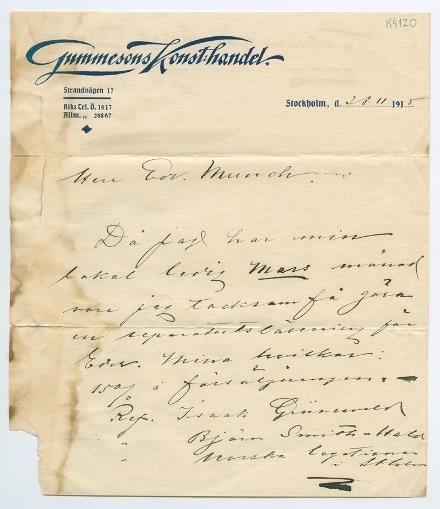 K4120
Gummesons Konsthandel.
Strandvägen 17
Riks Tel. Ö. 1617
Allm. „ 26867
Stockholm, d. 23 11 1915
Herr Edv. Munch.
Då jag har min
lokal ledig Mars månad
vore jag tacksam få göra
en separatutställning för
Eder. Mina vilkor:
15% å försäljningen.
Ref. Isaak Grünewald
" Björn Smith-Hald
" Norska legationen
i Stholm